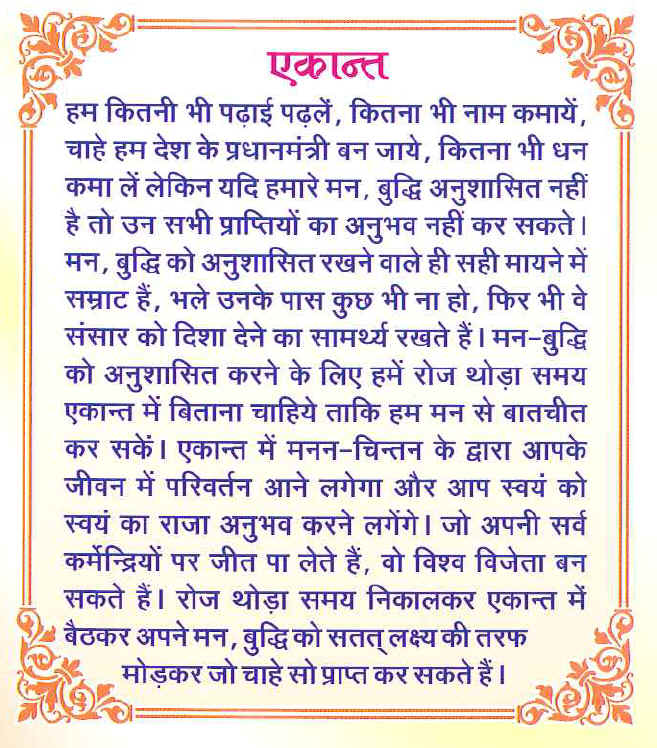 एकान्त
हम कितनी भी पढ़ाई पढ़लें, कितना भी नाम कमायें,
चाहे हम देश के प्रधानमंत्री बन जाये, कितना भी धन
कमा लें लेकिन यदि हमारे मन, बुद्धि अनुशासित नहीं
है तो उन सभी प्राप्तियों का अनुभव नहीं कर सकते।
मन, बुद्धि को अनुशासित रखने वाले ही सही मायने में
सम्राट हैं, भले उनके पास कुछ भी ना हो, फिर भी वे
संसार को दिशा देने का सामर्थ्य रखते हैं। मन-बुद्धि
को अनुशासित करने के लिए हमें रोज थोड़ा समय
एकान्त में बिताना चाहिये ताकि हम मन से बातचीत
कर सकें। एकान्त में मनन-चिन्तन के द्वारा आपके
जीवन में परिवर्तन आने लगेगा और आप स्वयं को
स्वयं का राजा अनुभव करने लगेंगे। जो अपनी सर्व
कर्मेन्द्रियों पर जीत पा लेते हैं, वो विश्व विजेता बन
सकते हैं। रोज थोड़ा समय निकालकर एकान्त में
बैठकर अपने मन, बुद्धि को सतत् लक्ष्य की तरफ
मोड़कर जो चाहे सो प्राप्त कर सकते हैं।